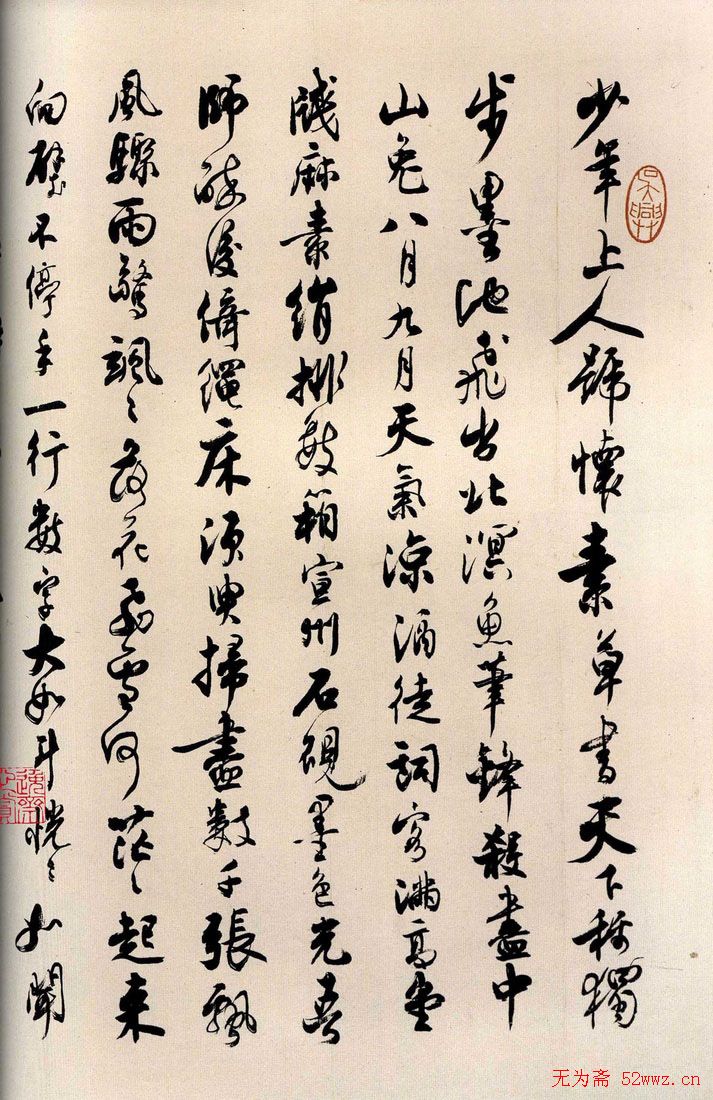 少年上人號懷素草書天下稱獨
步墨池飛出北溟魚筆鋒殺盡中
山兔八月九月天氣涼酒徒詞客滿高堂
牋麻素絹排數箱宣州石硯墨色光吾
師醉後倚繩床須臾掃盡數千張飄
風驟雨驚颯〻落花飛雪何茫〻起來
向壁不停手一行數字大如斗怳〻如聞
吳興
无为斋 52wwz.cn